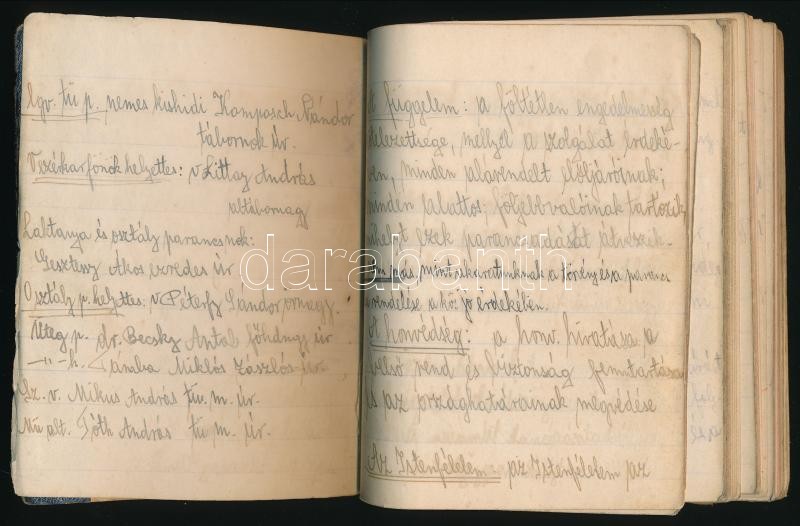 lgv. tü p. nemes kishidi Kamposch Nándor
tábornok úr.
Vezérkarfőnök helyettes: v. Littay András
altábornagy
Laktanya és osztály parancsnok:
Gesztesy Ákos ezredes úr
Osztály p. helyettes: v. Péterfy Sándor őrnagy.
Üteg p. dr. Becsky Antal főhdngy úr
-"- h. Miklós zászlós úr.
Sz. v. Mikus András tü. m. úr.
Mü alt. Tóth András tü m. úr.
A függelem: a föltétlen engedelmesség
kötelezettsége, mellyel a szolgálat érdeké-
ben, minden alárendelt elöljáróinak;
minden alattos; följebbvalóinak tartozik
mihelyt ezek parancsadását átveszik.
mint akaratunknak a törény és a parancs
alárendelése a köz jó érdekében.
A honvédség: a honv. hivatása a
belső rend és biztonság fenntartása
és az országhatárainak megvédése
Az Istenfélelem: az Istenfélelem az
darabanth